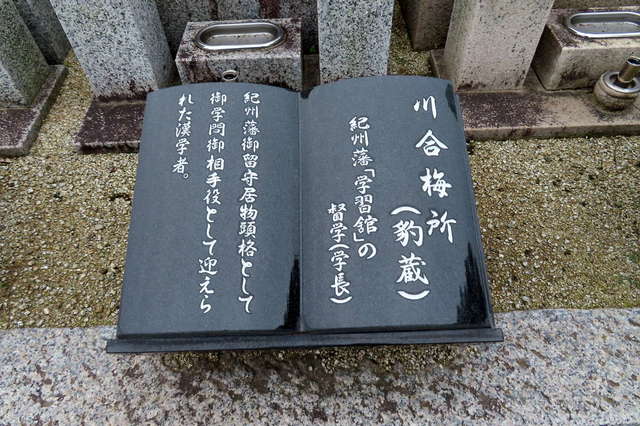 川合梅所
(豹蔵)
紀州藩「学習館」の
督学(学長)
紀州藩御留守居物頭格として
御学問御相手役として迎えら
れた漢学者。